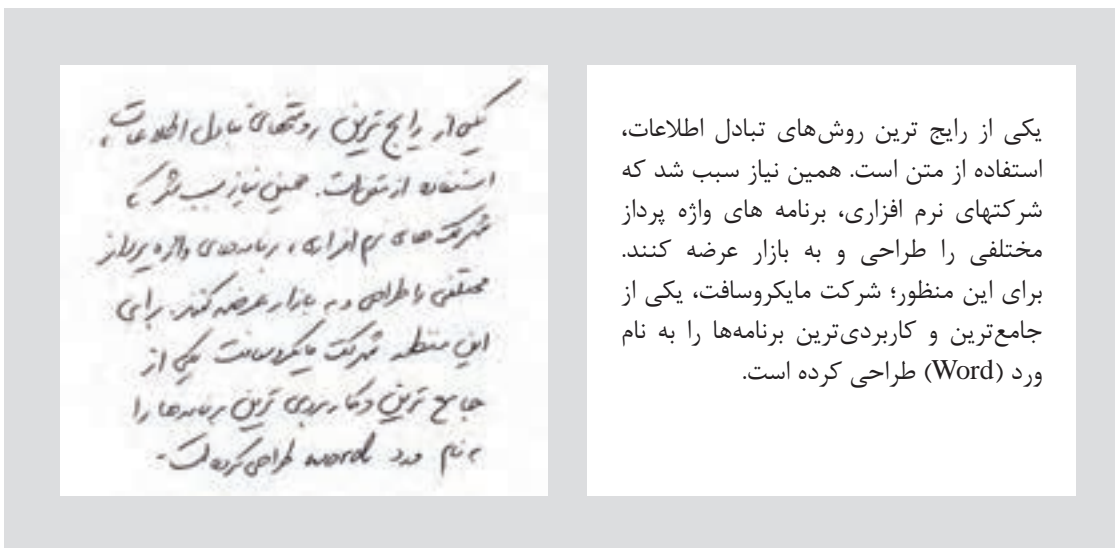 یکی از رایج ترین روش‌های تبادل اطلاعات،
استفاده از متن است. همین نیاز سبب شد که
شرکتهای نرم افزاری، برنامه های واژه پرداز
مختلفی را طراحی و به بازار عرضه کنند.
برای این منظور؛ شرکت مایکروسافت، یکی از
جامع‌ترین و کاربردی‌ترین برنامه‌ها را به نام
ورد (Word) طراحی کرده است.
یکی از رایج ترین روشهای تبادل اطلاعات،
استفاده از متن است. همین نیاز سبب شد که
شرکت های نرم افزاری، برنامه‌های واژه پرداز
مختلفی را طراحی و به بازار عرضه کنند. برای
این منظور شرکت مایکروسافت یکی از
جامع ترین و کاربردی ترین برنامه‌ها را
به نام ورد word طراحی کرده است.